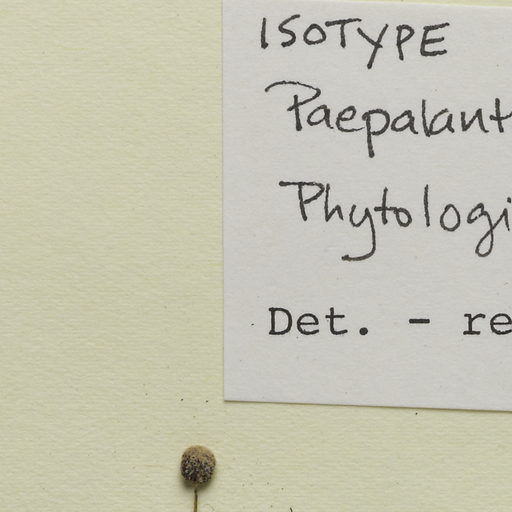 ISOTYPE
Paepalant
Phytologi
Det. - re